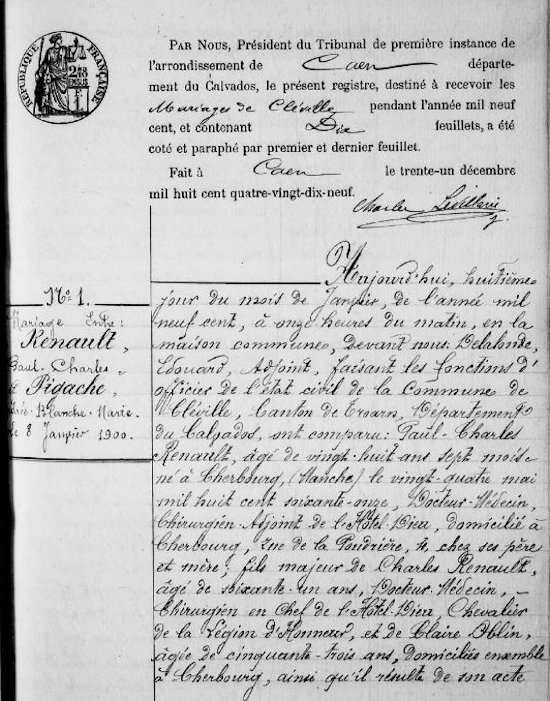 RÉPUBLIQUE FRANÇAISE
PAR NOUS, Président du Tribunal de première instance de
l'arrondissement de Caen départe-
ment du Calvados, le présent registre, destiné à recevoir les
Mariages de Cléville pendant l'année mil neuf
cent, et contenant Dix feuillets, a été
coté et paraphé par premier et dernier feuillet.
Fait à Caen le trente-un décembre
mil huit cent quatre-vingt-dix-neuf.
Charles
No 1.
Mariage Entre:
Renault,
Paul-Charles
&
Pigache,
Blanche-Marie.
le 8 Janvier 1900.
Aujourd'hui, huitième
jour du mois de Janvier, de l'année mil
neuf cent, à onze heures du matin, en la
maison commune, devant nous: Delalonde,
Edouard, Adjoint, faisant les fonctions d'
officier de l'état civil de la Commune de
Cléville, Canton de Troarn, Département
du Calvados, ont comparu: Paul-Charles
Renault, âgé de vingt-huit ans sept mois-
né à Cherbourg, (Manche) le vingt-quatre mai
mil huit cent soixante-onze, Docteur-Médecin,
Chirurgien-Adjoint de l'Hôtel-Dieu, domicilié à
Cherbourg, rue de la Poudrière, 4, chez ses père
et mère; fils majeur de Charles Renault,
âgé de soixante-un ans, Docteur-Médecin, -
Chirurgien en Chef de l'Hôtel-Dieu, Chevalier
de la Légion d'Honneur, et de Claire Oblin,
âgée de cinquante-trois ans, domiciliés ensemble
à Cherbourg, ainsi qu'il résulte de son acte